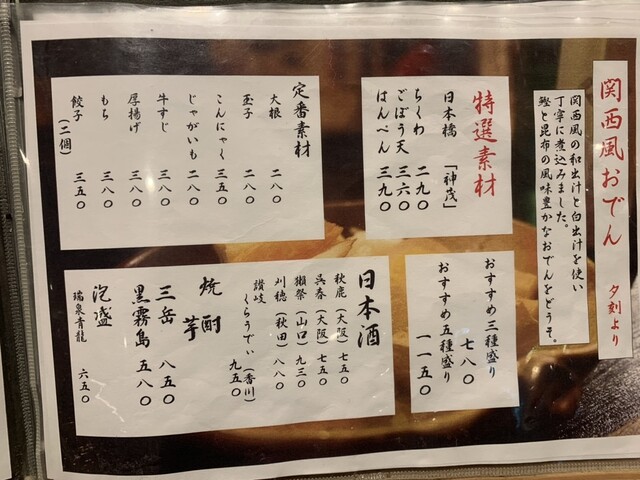 関西風おでん 夕刻より
関西風の和出汁と白出汁を使い
丁寧に煮込みました。
鰹と昆布の風味豊かなおでんをどうぞ。
特選素材
日本橋 「神茂」
ちくわ 二九〇
ごぼう天 三六〇
はんぺん 三九〇
定番素材
大根 二八〇
玉子 二八〇
こんにゃく 三五〇
じゃがいも 二八〇
牛すじ 三八〇
厚揚げ 三八〇
もち 三八〇
餃子(二個) 三五〇
おすすめ三種盛り 七八〇
おすすめ五種盛り 一一五〇
日本酒
秋鹿(大阪)七五〇
呉春(大阪)七五〇
獺祭(山口)九三〇
刈穂(秋田)八八〇
讃岐くらうでぃ(香川)
九五〇
焼酎 芋
三岳 八五〇
黒霧島 五八〇
泡盛
瑞泉青龍 六五〇